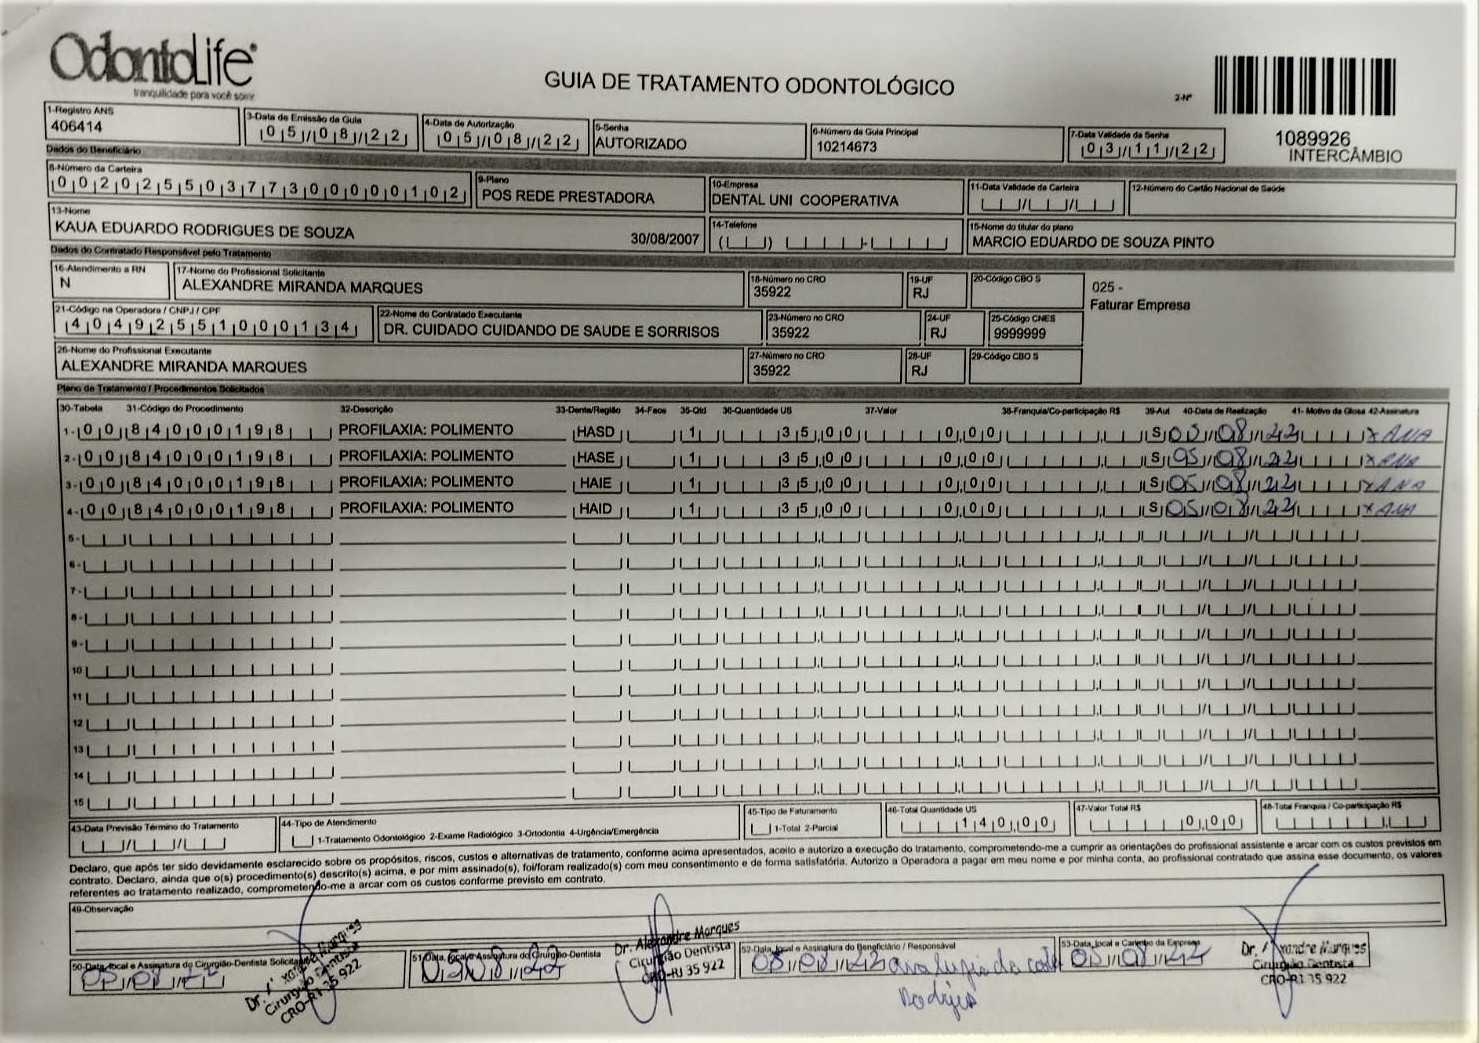 OdontoLife
tranquilidade para você sorrir
GUIA DE TRATAMENTO ODONTOLÓGICO
2-Nº
1089926
INTERCÂMBIO
1-Registro ANS
406414
3-Data de Emissão da Guia
05/08/22
4-Data de Autorização
05/08/22
5-Senha
AUTORIZADO
6-Número da Guia Principal
10214673
7-Data Validade da Senha
03/11/22
Dados do Beneficiário
8-Número da Carteira
00202550377300000102
9-Plano
POS REDE PRESTADORA
10-Empresa
DENTAL UNI COOPERATIVA
11-Data Validade da Carteira
12-Número do Cartão Nacional de Saúde
13-Nome
KAUA EDUARDO RODRIGUES DE SOUZA 30/08/2007
14-Telefone
15-Nome do titular do plano
MARCIO EDUARDO DE SOUZA PINTO
Dados do Contratado Responsável pelo Tratamento
16-Atendimento a RN
N
17-Nome do Profissional Solicitante
ALEXANDRE MIRANDA MARQUES
18-Número no CRO
35922
19-UF
RJ
20-Código CBO S
025 -
Faturar Empresa
21-Código na Operadora / CNPJ / CPF
40492551000134
22-Nome do Contratado Executante
DR. CUIDADO CUIDANDO DE SAUDE E SORRISOS
23-Número no CRO
35922
24-UF
RJ
25-Código CNES
9999999
26-Nome do Profissional Executante
ALEXANDRE MIRANDA MARQUES
27-Número no CRO
35922
28-UF
RJ
29-Código CBO S
Plano de Tratamento / Procedimentos Solicitados
30-Tabela 31-Código do Procedimento 32-Descrição 33-Dente/Região 34-Face 35-Qtd 36-Quantidade US 37-Valor 38-Franquia/Co-participação R$ 39-Aut 40-Data de Realização 41- Motivo da Glosa 42-Assinatura
1- 00 84000198 PROFILAXIA: POLIMENTO HASD 1 35,00 0,00 S 05/08/22 x ANA
2- 00 84000198 PROFILAXIA: POLIMENTO HASE 1 35,00 0,00 S 05/08/22 x ANA
3- 00 84000198 PROFILAXIA: POLIMENTO HAIE 1 35,00 0,00 S 05/08/22 x ANA
4- 00 84000198 PROFILAXIA: POLIMENTO HAID 1 35,00 0,00 S 05/08/22 x ANA
5-
6-
7-
8-
9-
10
11
12
13
14
15
43-Data Previsão Término do Tratamento
44-Tipo de Atendimento
1-Tratamento Odontológico 2-Exame Radiológico 3-Ortodontia 4-Urgência/Emergência
45-Tipo de Faturamento
1-Total 2-Parcial
46-Total Quantidade US
140,00
47-Valor Total R$
0,00
48-Total Franquia / Co-participação R$
Declaro, que após ter sido devidamente esclarecido sobre os propósitos, riscos, custos e alternativas de tratamento, conforme acima apresentados, aceito e autorizo a execução do tratamento, comprometendo-me a cumprir as orientações do profissional assistente e arcar com os custos previstos em
contrato. Declaro, ainda que o(s) procedimento(s) descrito(s) acima, e por mim assinado(s), foi/foram realizado(s) com meu consentimento e de forma satisfatória. Autorizo a Operadora a pagar em meu nome e por minha conta, ao profissional contratado que assina esse documento, os valores
referentes ao tratamento realizado, comprometendo-me a arcar com os custos conforme previsto em contrato.
49-Observação
50-Data, local e Assinatura do Cirurgião-Dentista Solicitante
05/08/22
Marques
Cirurgião Dentista
CRO-RJ 35 922
51-Data, local e Assinatura do Cirurgião-Dentista
05/08/22
Dr. Alexandre Marques
Cirurgião Dentista
CRO-RJ 35 922
52-Data, local e Assinatura do Beneficiário / Responsável
05/08/22 ana
53-Data, local e Carimbo da Empresa
05/08/22
Marques
Cirurgião Dentista
CRO-RJ 35 922